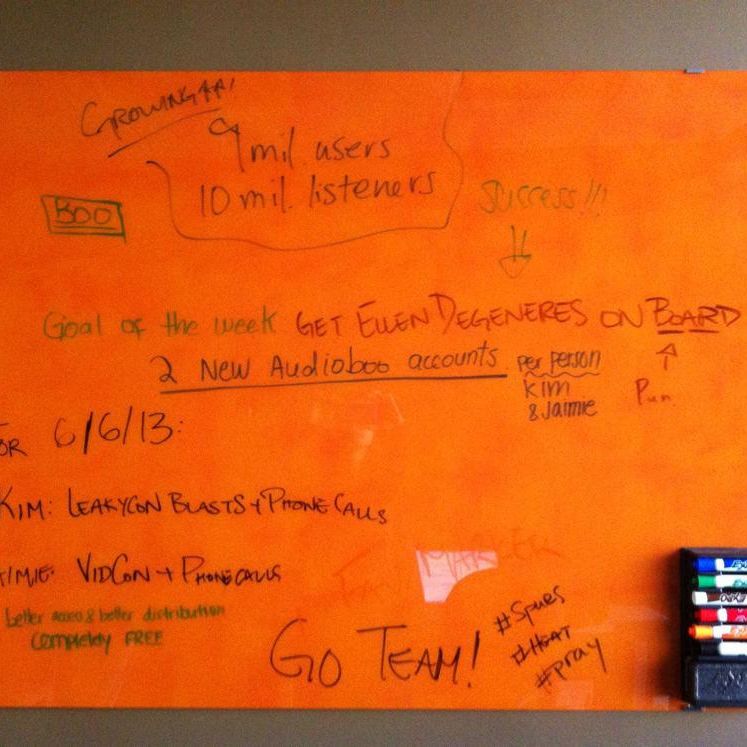 GROWING
9 mil users
10 mil. listeners
BOO
Success!!!
Goal of the week GET ELLEN DEGENERES ON BOARD
2 New Audioboo accounts per person
Kim
& Jaimie
Pun
OR 6/6/13:
KIM: LEAKYCON BLASTS + PHONE CALLS
IMIE: VIDCON + PHONE CALLS
better & better distribution
Completely FREE
MARKER
GO TEAM!
#Spurs
#HEAT
#pray